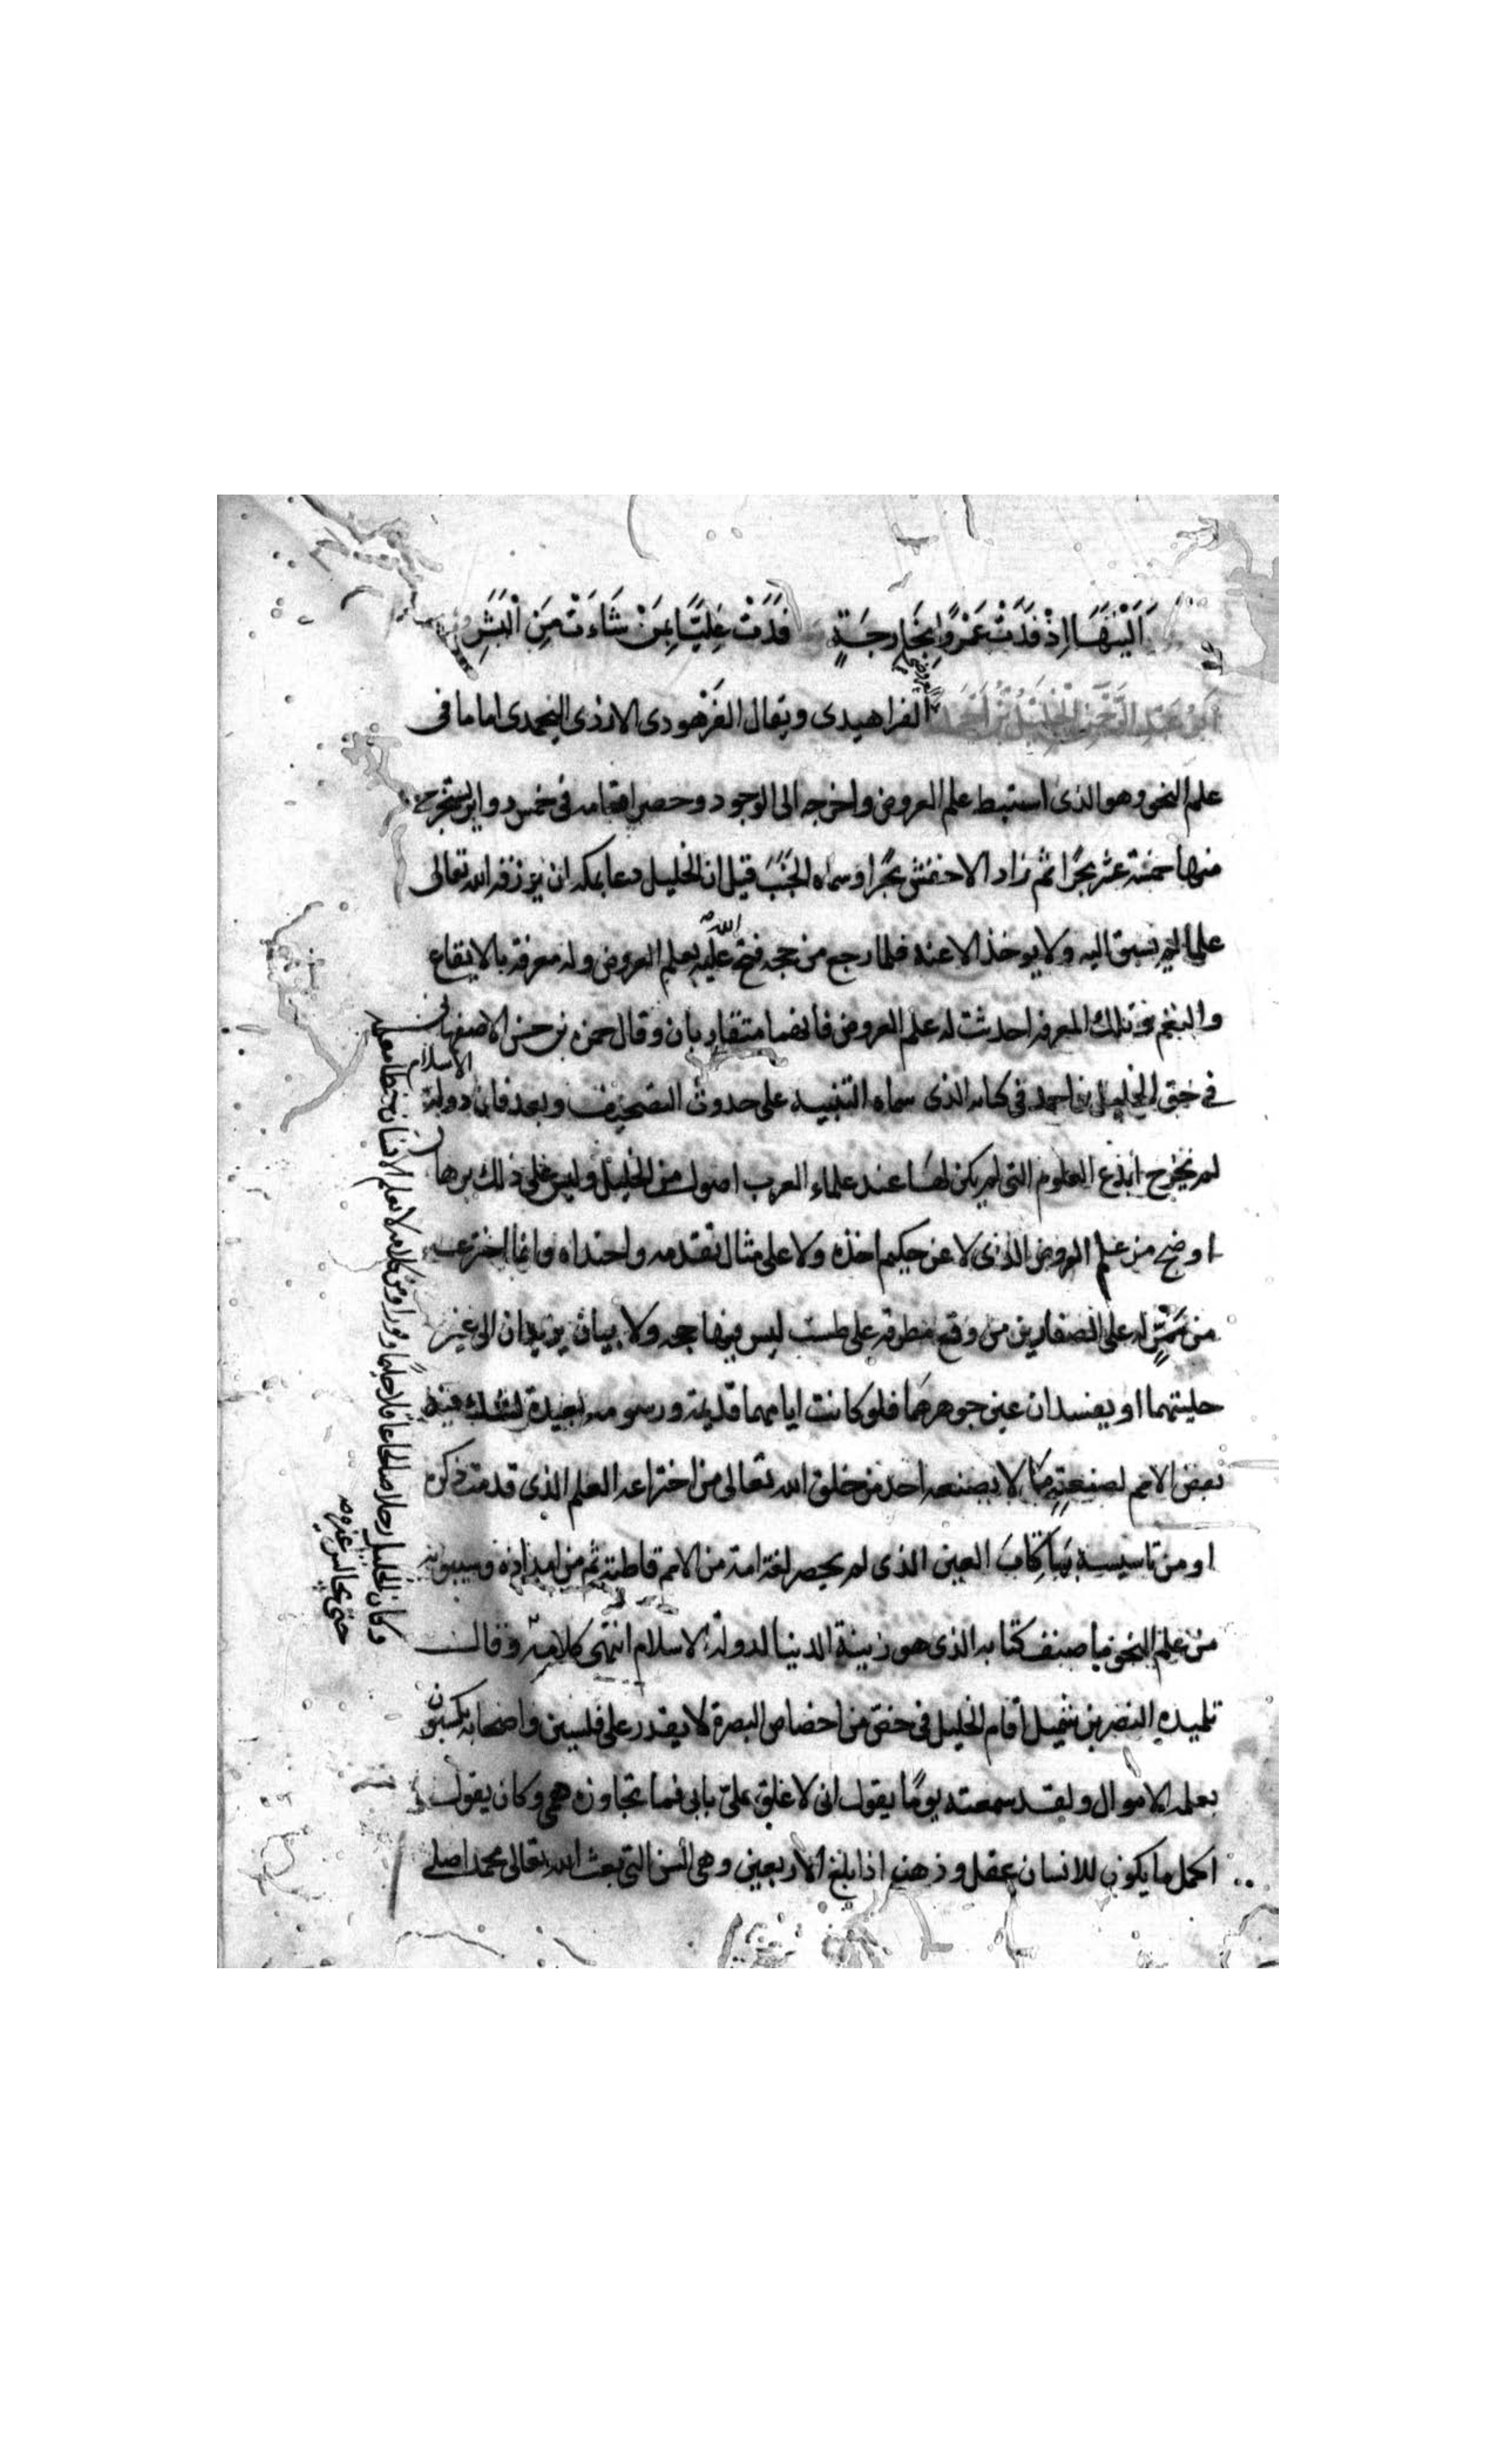 اَلَيْتَهَا اِذْ فَدَتْ عَمْرًوا بِخَارِجَةٍ فَدَتْ عَلِيًّا بِمَنْ شَاءَتْ مِنَ الْبَشَرِ
اَبُو عَبْدِ الرَّحْمٰنِ الْخَلِيْلُ بْنُ اَحْمَدَ الفراهيدى ويقال الفَرْهودى الازدى اليحمدى اماما فى
علم النحو وهو الذى استنبط علم العروض واخرجه الى الوجود وحصر اقسامه فى خمس دواير يستخرج
منها خمسة عشر بحرًا ثم زاد الاخفش بحرًا وسماه الخَبَبَ قيل ان الخليل دعا بمكة ان يرزقه الله تعالى
علما لم يسبق اليه ولا يوخذ الا عنه فلما رجع من حجه فتح الله عليه بعلم العروض وله معرفة بالايقاع
والنغم وتلك المعرفة احدثت له علم العروض فانهما متقاربان وقال حمزه بن حسن الاصفهانى
فى حق الخليل بن احمد فى كتابه الذى سماه التنبيه على حدوث التصحيف وبعد فان دولة الاسلام
لم تخرج ابدع العلوم التى لم يكن لها عند علماء العرب اصول من الخليل وليس على ذلك برهان
اوضح من علم العروض الذى لا عن حكيم اخذه ولا على مثال تقدمه واحتذاه وانما اخترعه
من مَمَرٍّ له على الصفارين من وقع مطرقه على طست ليس فيها حجه ولا بيان يزيدان الى غير
حليتهما او يفسدان عين جوهرهما فلو كانت ايامهما قديمة ورسومه بعيدة لشك فيه
بعض الامم لصنعتِهِ مَا لا يصنعه احد من خلق الله تعالى من اختراعه العلم الذى قدمت ذكره
او من تاسيسه بِنَاء كِتَابَ العين الذى لم يحصر لغة امة من الامم قاطبة ثم من امداده سيبويه
من علم النحو ما صنف كتابه الذى هو زينة الدنيا لدولة الاسلام انتهى كلامه وقال
تلميذه النضر بن شميل اقام الخليل فى خصّ من اخصاص البصرة لا يقدر على فلسين واصحابه يكسبون
بعلمه الاموال ولقد سمعته يومًا يقول انى لاغلق علىّ بابى فما تجاوزه همى وكان يقول
اكمل ما يكون للانسان عقله وذهنه اذا بلغ الاربعين وهى السن التى بعث الله تعالى محمدا صلى
وكان الخليل رجلا صالحا عاقلا حليما وقورا ومن كلامه لا يعلم الانسان خطا معلمه
حتى يجالس غيره صح